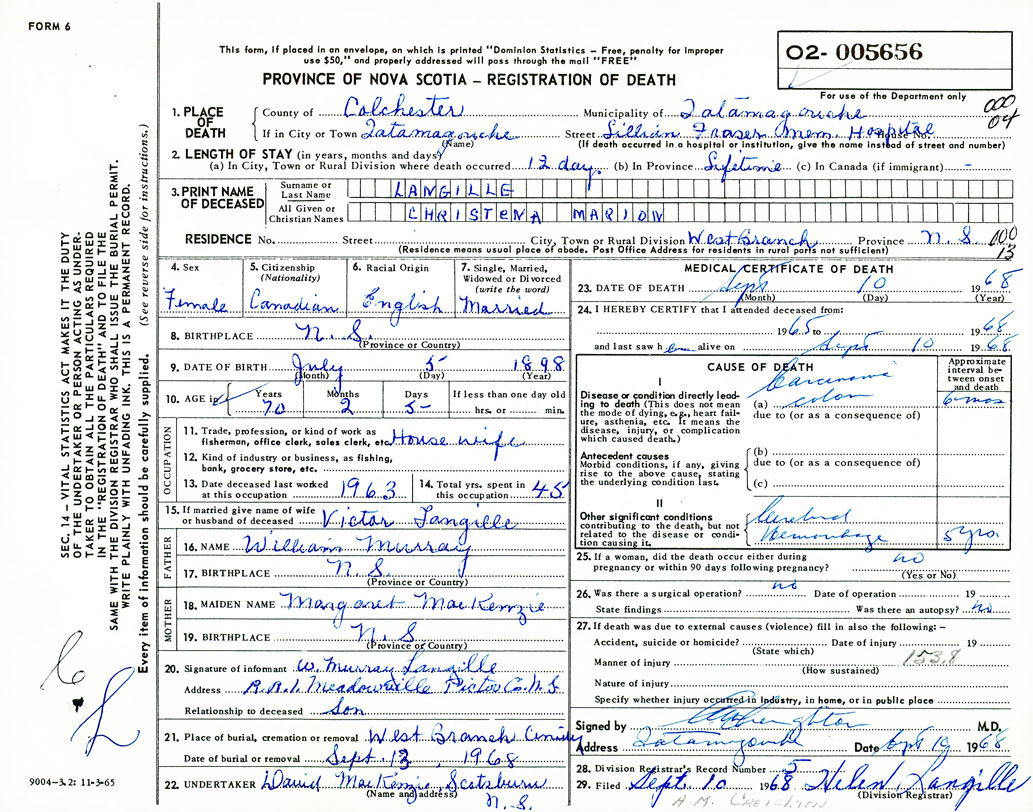 FORM 6
This form, if placed in an envelope, on which is printed "Dominion Statistics – Free, penalty for improper
use $50," and properly addressed will pass through the mail "FREE"
PROVINCE OF NOVA SCOTIA – REGISTRATION OF DEATH
02- 005656
For use of the Department only
SEC. 14 – VITAL STATISTICS ACT MAKES IT THE DUTY
OF THE UNDERTAKER OR PERSON ACTING AS UNDER-
TAKER TO OBTAIN ALL THE PARTICULARS REQUIRED
IN THE "REGISTRATION OF DEATH" AND TO FILE THE
SAME WITH THE DIVISION REGISTRAR WHO SHALL ISSUE THE BURIAL PERMIT.
WRITE PLAINLY WITH UNFADING INK. THIS IS A PERMANENT RECORD.
Every item of information should be carefully supplied. (See reverse side for instructions.)
1. PLACE OF DEATH County of Colchester Municipality of Tatamagouche 000 04
If in City or Town Tatamagouche (Name) Street Lillian Fraser Mem. Hospital House No.
(If death occurred in a hospital or institution, give the name instead of street and number)
2. LENGTH OF STAY (in years, months and days)
(a) In City, Town or Rural Division where death occurred 12 days (b) In Province Lifetime (c) In Canada (if immigrant) -
3. PRINT NAME OF DECEASED Surname or Last Name LANGILLE
All Given or Christian Names CHRISTENA MARION
RESIDENCE No. Street City, Town or Rural Division West Branch Province N.S. 000 13
(Residence means usual place of abode. Post Office Address for residents in rural parts not sufficient)
4. Sex 5. Citizenship (Nationality) 6. Racial Origin 7. Single, Married, Widowed or Divorced (write the word)
Female Canadian English Married
8. BIRTHPLACE N.S.
(Province or Country)
9. DATE OF BIRTH July 5 1898
(Month) (Day) (Year)
10. AGE in Years Months Days If less than one day old
70 2 5 hrs. or min.
OCCUPATION
11. Trade, profession, or kind of work as
fisherman, office clerk, sales clerk, etc. House wife
12. Kind of industry or business, as fishing,
bank, grocery store, etc.
13. Date deceased last worked at this occupation 1963 14. Total yrs. spent in this occupation 45
15. If married give name of wife
or husband of deceased Victor Langille
FATHER
16. NAME William Murray
17. BIRTHPLACE N.S.
(Province or Country)
MOTHER
18. MAIDEN NAME Margaret MacKenzie
19. BIRTHPLACE N.S.
(Province or Country)
20. Signature of informant W. Murray Langille
Address R.R.1. Meadowville Pictou Co. N.S.
Relationship to deceased Son
21. Place of burial, cremation or removal West Branch
Date of burial or removal Sept. 13, 1968
22. UNDERTAKER David MacKenzie, Scotsburn N.S.
(Name and address)
9004-3.2: 11-3-65
MEDICAL CERTIFICATE OF DEATH
23. DATE OF DEATH Sept 10 1968
(Month) (Day) (Year)
24. I HEREBY CERTIFY that I attended deceased from:
1965 to 1968
and last saw her alive on Sept 10 1968
CAUSE OF DEATH Approximate interval between onset and death
I
Disease or condition directly lead-
ing to death (This does not mean
the mode of dying, e.g., heart fail-
ure, asthenia, etc. It means the
disease, injury, or complication
which caused death.)
Carcinoma
(a) colon 6 mos
due to (or as a consequence of)
Antecedent causes
Morbid conditions, if any, giving
rise to the above cause, stating
the underlying condition last.
(b)
due to (or as a consequence of)
(c)
II
Other significant conditions
contributing to the death, but not
related to the disease or condi-
tion causing it.
Cerebral
Hemorrhage 5 yrs.
25. If a woman, did the death occur either during
pregnancy or within 90 days following pregnancy? no
(Yes or No)
26. Was there a surgical operation? no Date of operation 19
State findings Was there an autopsy? no
27. If death was due to external causes (violence) fill in also the following: –
Accident, suicide or homicide? Date of injury 19
(State which)
Manner of injury 153.8
(How sustained)
Nature of injury
Specify whether injury occurred in industry, in home, or in public place
Signed by M.D.
Address Tatamagouche Date Sept 19 1968
28. Division Registrar's Record Number 5
29. Filed Sept. 10 1968 Helen Langille
(Division Registrar)
H. M. CREIGHTON